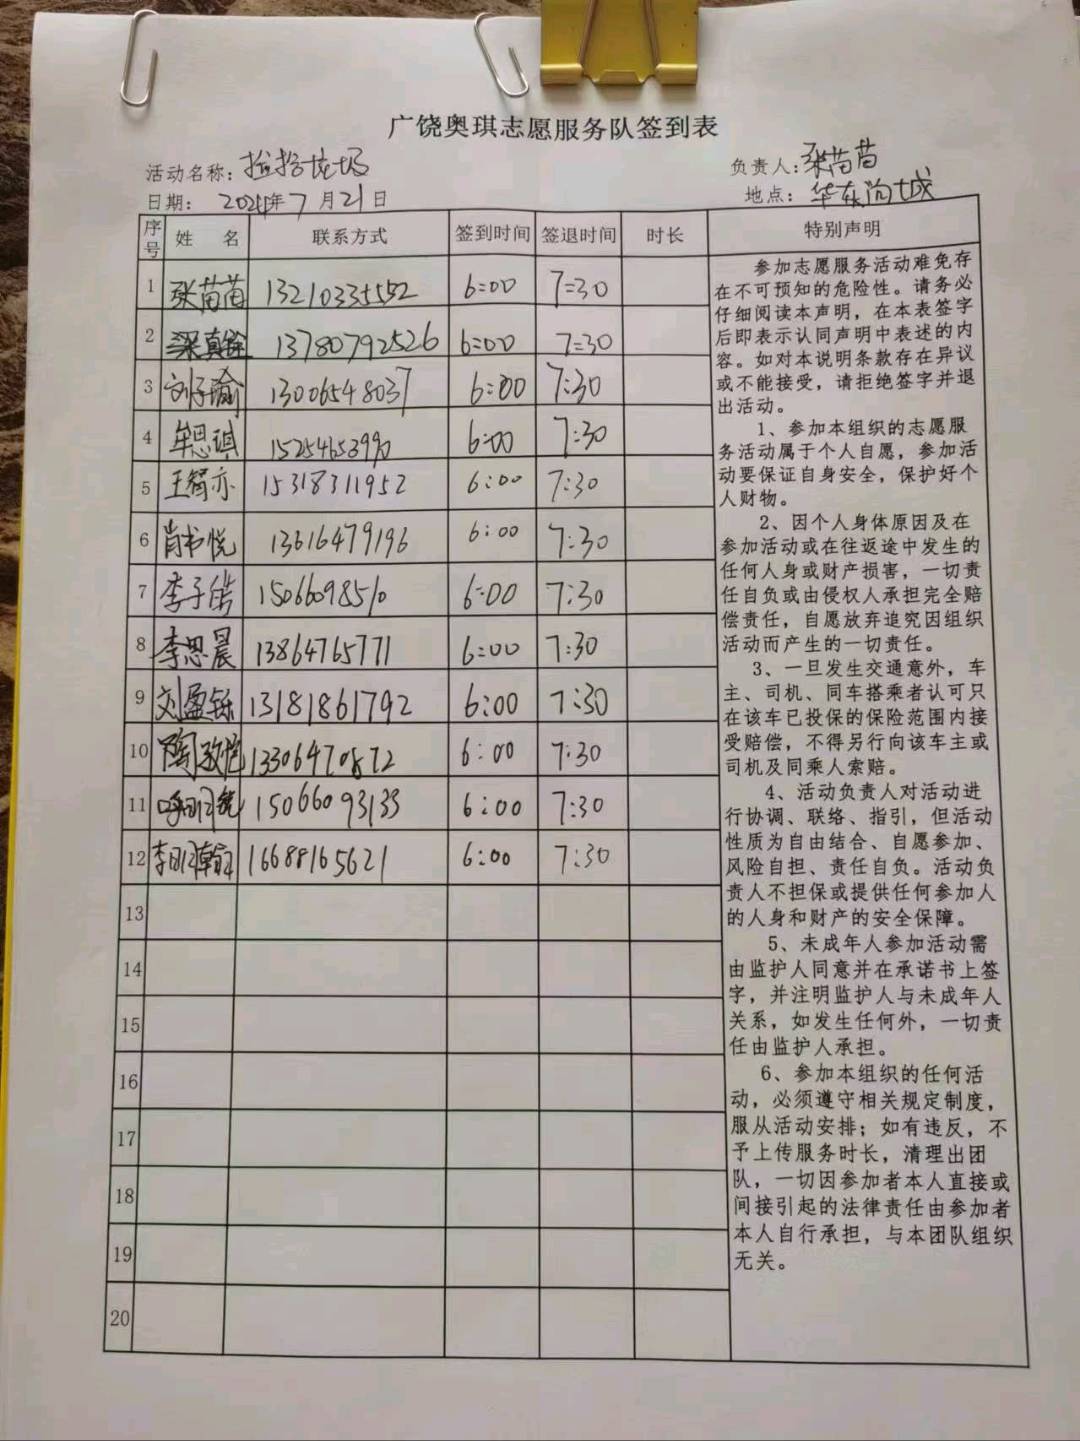 广饶奥琪志愿服务队签到表
活动名称：捡拾垃圾 负责人：张苗苗
日期： 2024年7月21日 地点：华东
序号 姓 名 联系方式 签到时间 签退时间 时长 特别声明
1 张苗苗 13210335552 6:00 7:30
2 13780792526 6:00 7:30
3 刘子瑜 13006548037 6:00 7:30
4 牟思琪 15254653990 6:00 7:30
5 王智亦 15318311952 6:00 7:30
6 肖书悦 13616479196 6:00 7:30
7 李子皓 15066098510 6:00 7:30
8 李思晨 13864765771 6:00 7:30
9 刘盈铄 13181861792 6:00 7:30
10 6:00 7:30
11 15066093133 6:00 7:30
12 李明翰 16688165621 6:00 7:30
13
14
15
16
17
18
19
20
参加志愿服务活动难免存
在不可预知的危险性。请务必
仔细阅读本声明，在本表签字
后即表示认同声明中表述的内
容。如对本说明条款存在异议
或不能接受，请拒绝签字并退
出活动。
1、参加本组织的志愿服
务活动属于个人自愿，参加活
动要保证自身安全，保护好个
人财物。
2、因个人身体原因及在
参加活动或在往返途中发生的
任何人身或财产损害，一切责
任自负或由侵权人承担完全赔
偿责任，自愿放弃追究因组织
活动而产生的一切责任。
3、一旦发生交通意外，车
主、司机、同车搭乘者认可只
在该车已投保的保险范围内接
受赔偿，不得另行向该车主或
司机及同乘人索赔。
4、活动负责人对活动进
行协调、联络、指引，但活动
性质为自由结合、自愿参加、
风险自担、责任自负。活动负
责人不担保或提供任何参加人
的人身和财产的安全保障。
5、未成年人参加活动需
由监护人同意并在承诺书上签
字，并注明监护人与未成年人
关系，如发生任何外，一切责
任由监护人承担。
6、参加本组织的任何活
动，必须遵守相关规定制度，
服从活动安排；如有违反，不
予上传服务时长，清理出团
队，一切因参加者本人直接或
间接引起的法律责任由参加者
本人自行承担，与本团队组织
无关。